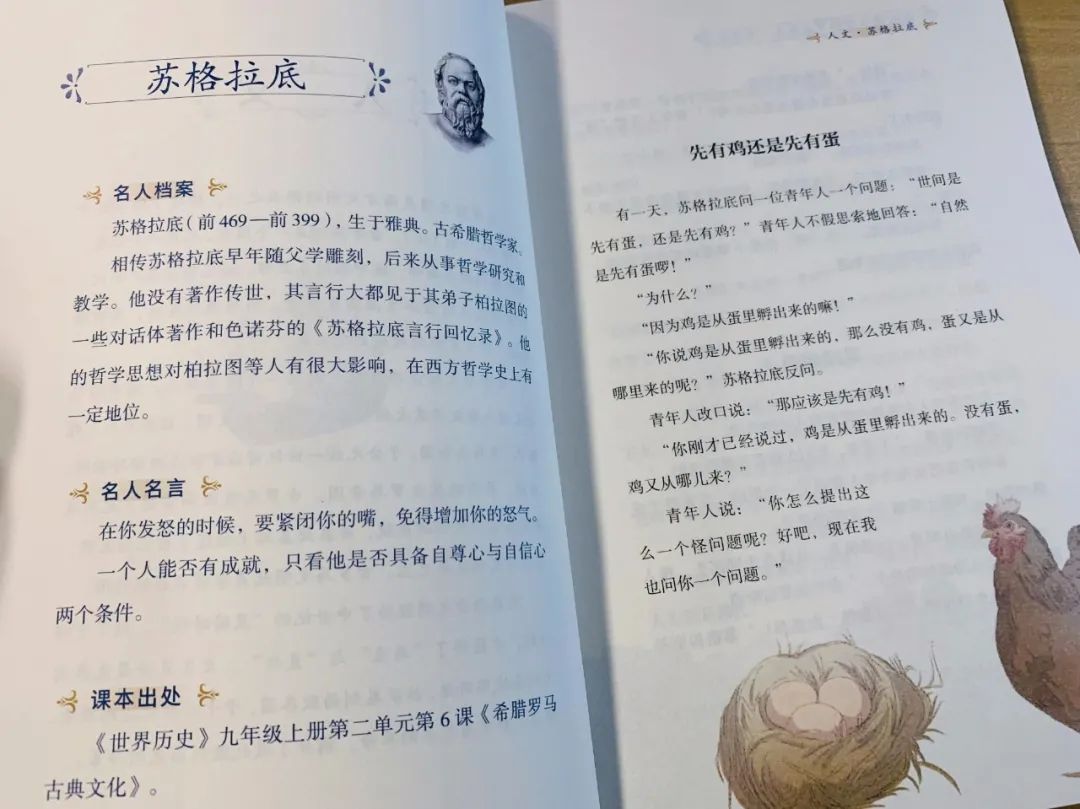 苏格拉底
名人档案
苏格拉底（前469—前399），生于雅典。古希腊哲学家。
相传苏格拉底早年随父学雕刻，后来从事哲学研究和
教学。他没有著作传世，其言行大都见于其弟子柏拉图的
一些对话体著作和色诺芬的《苏格拉底言行回忆录》。他
的哲学思想对柏拉图等人有很大影响，在西方哲学史上有
一定地位。
名人名言
在你发怒的时候，要紧闭你的嘴，免得增加你的怒气。
一个人能否有成就，只看他是否具备自尊心与自信心
两个条件。
课本出处
《世界历史》九年级上册第二单元第6课《希腊罗马
古典文化》。
人文·苏格拉底
先有鸡还是先有蛋
有一天，苏格拉底问一位青年人一个问题：“世间是
先有蛋，还是先有鸡？”青年人不假思索地回答：“自然
是先有蛋啰！”
“为什么？”
“因为鸡是从蛋里孵出来的嘛！”
“你说鸡是从蛋里孵出来的，那么没有鸡，蛋又是从
哪里来的呢？”苏格拉底反问。
青年人改口说：“那应该是先有鸡！”
“你刚才已经说过，鸡是从蛋里孵出来的。没有蛋，
鸡又从哪儿来？”
青年人说：“你怎么提出这
么一个怪问题呢？好吧，现在我
也问你一个问题。”